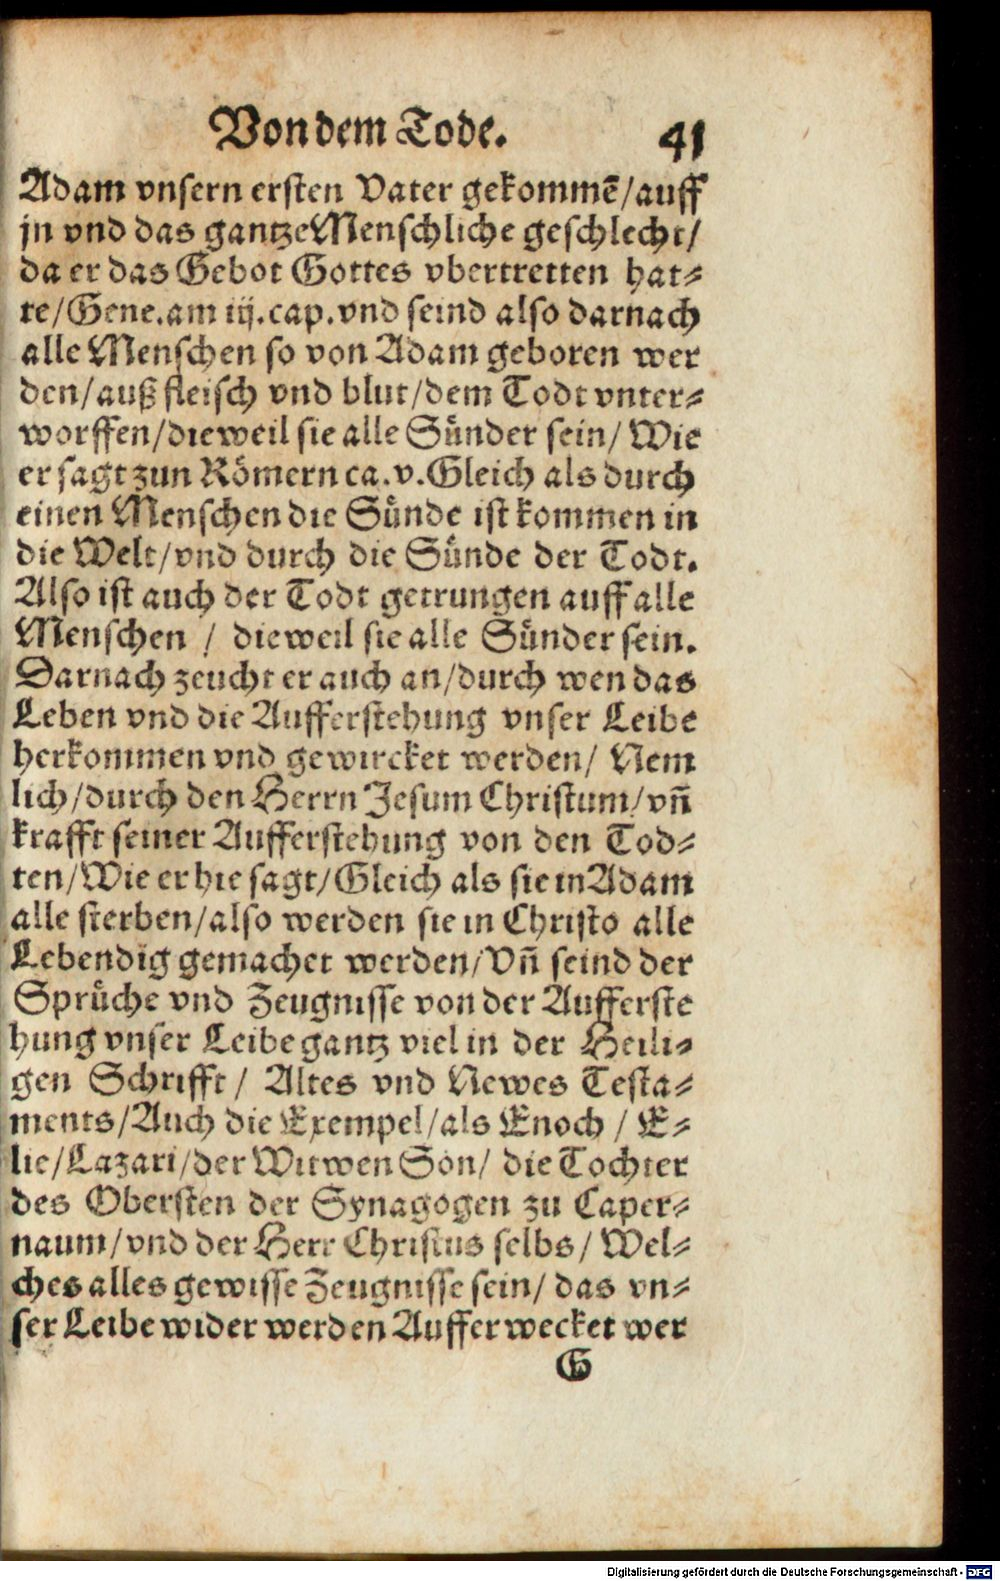 Von dem Tode. 41
Adam vnsern ersten Vater gekommē/auff
jn vnd das gantze Menschliche geschlecht/
da er das Gebot Gottes vbertretten hat-
te/Gene.am iij.cap.vnd seind also darnach
alle Menschen so von Adam geboren wer
den/auß fleisch vnd blut/dem Todt vnter-
worffen/dieweil sie alle Sünder sein/ Wie
er sagt zun Römern ca.v.Gleich als durch
einen Menschen die Sünde ist kommen in
die Welt/vnd durch die Sünde der Todt.
Also ist auch der Todt getrungen auff alle
Menschen / dieweil sie alle Sünder sein.
Darnach zeucht er auch an/durch wen das
Leben vnd die Aufferstehung vnser Leibe
herkommen vnd gewircket werden/ Nem
lich/durch den Herrn Jesum Christum/vñ
krafft seiner Aufferstehung von den Tod-
ten/Wie er hie sagt/Gleich als sie in Adam
alle sterben/also werden sie in Christo alle
Lebendig gemachet werden/Vñ seind der
Sprüche vnd Zeugnisse von der Aufferste
hung vnser Leibe gantz viel in der Heili-
gen Schrifft/ Altes vnd Newes Testa-
ments/Auch die Exempel/als Enoch / E-
lie/Lazari/der Witwen Son/ die Tochter
des Obersten der Synagogen zu Caper-
naum/vnd der Herr Christus selbs/ Wel-
ches alles gewisse Zeugnisse sein/ das vn-
ser Leibe wider werden Aufferwecket wer
G
Digitalisierung gefördert durch die Deutsche Forschungsgemeinschaft - DFG